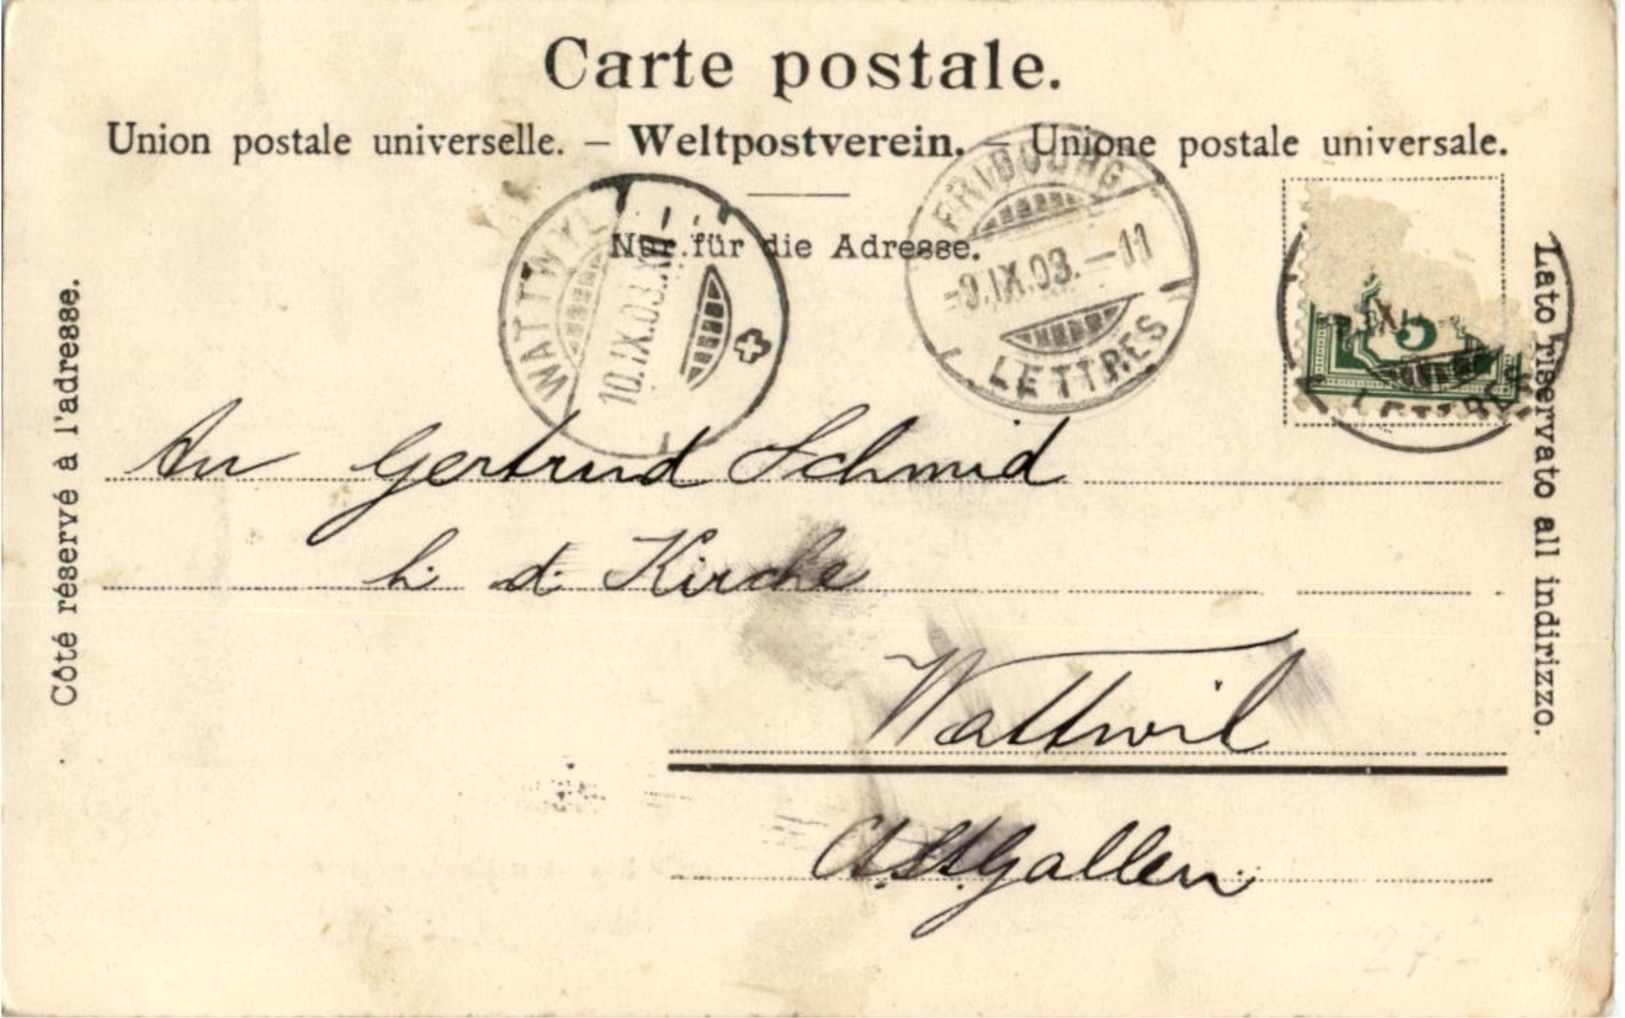 Carte postale.
Union postale universelle. — Weltpostverein. — Unione postale universale.
Nur für die Adresse.
Côté réservé à l'adresse.
Lato riservato all indirizzo.
WATTWYL
10.IX.03.XII
FRIBOURG
-9.IX.03.-11
LETTRES
5
IX
LETTRES
An Gertrud Schmid
h. d. Kirche
Wattwil
Ct. St. Gallen
27-